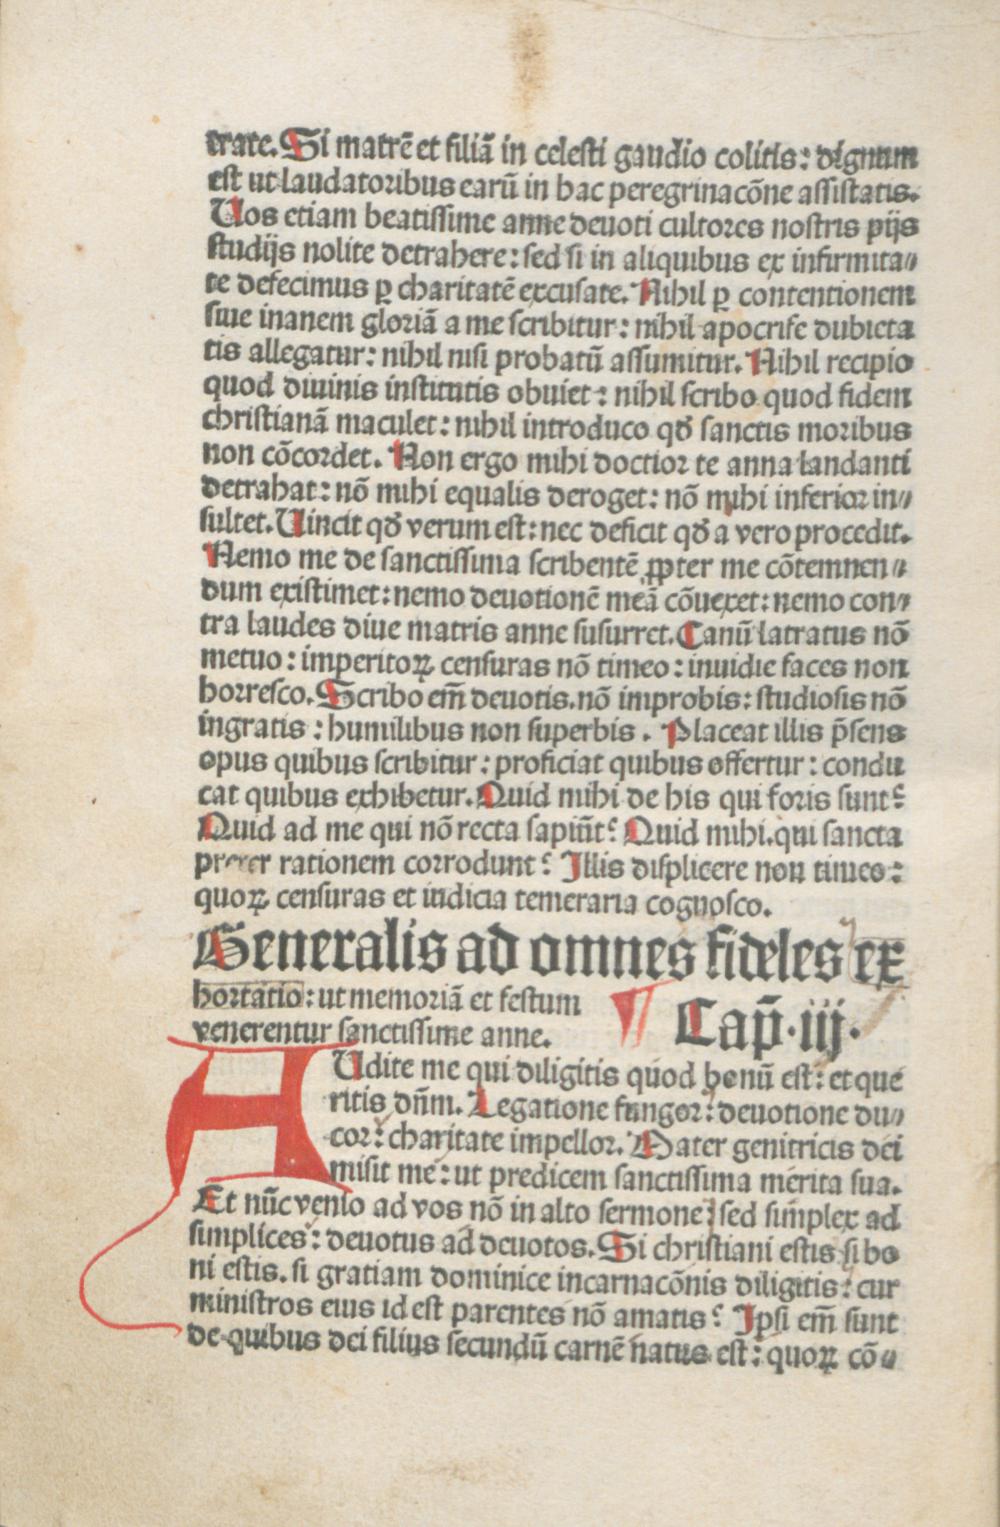 trate. Si matrē et filiā in celesti gaudio colitis: dignum
est ut laudatoribus earū in hac peregrinacōne assistatis.
Uos etiam beatissime anne deuoti cultores nostris pijs
studijs nolite detrahere: sed si in aliquibus ex infirmita⸗
te defecimus ꝑ charitatē excusate. Nihil ꝑ contentionem
siue inanem gloriā a me scribitur: nihil apocrife dubieta
tis allegatur: nihil nisi probatū assumitur. Nihil recipio
quod diuinis institutis obuiet: nihil scribo quod fidem
christianā maculet: nihil introduco qď sanctis moribus
non cōcordet. Non ergo mihi doctior te anna laudanti
detrahat: nō mihi equalis deroget: nō mihi inferior in⸗
sultet. Uincit qď verum est: nec deficit qď a vero procedit.
Nemo me de sanctissima scribentē ꝓpter me cōtemnen⸗
dum existimet: nemo deuotionē meā cōuexet: nemo con⸗
tra laudes diue matris anne susurret. Canū latratus nō
metuo: imperitoꝝ censuras nō timeo: inuidie faces non
horresco. Scribo em̄ deuotis. nō improbis: studiosis nō
ingratis: humilibus non superbis. Placeat illis p̄sens
opus quibus scribitur: proficiat quibus offertur: condu
cat quibus exhibetur. Quid mihi de his qui foris sunt?
Quid ad me qui nō recta sapiūt? Quid mihi. qui sancta
preter rationem corrodunt? Illis displicere non timeo:
quoꝝ censuras et iudicia temeraria cognosco.
Generalis ad omnes fideles ex
hortatio: ut memoriā et festum
venerentur sanctissime anne. ¶ Cap̄. iij.
AUdite me qui diligitis quod bonū est: et que
ritis dn̄m. Legatione fungor: deuotione du⸗
cor: charitate impellor. Mater genitricis dei
misit me: ut predicem sanctissima merita sua.
Et nūc venio ad vos nō in alto sermone: sed simplex ad
simplices: deuotus ad deuotos. Si christiani estis si bo
ni estis. si gratiam dominice incarnacōnis diligitis: cur
ministros eius id est parentes nō amatis? Ipsi em̄ sunt
de quibus dei filius secundū carnē natus est: quoꝝ cō⸗